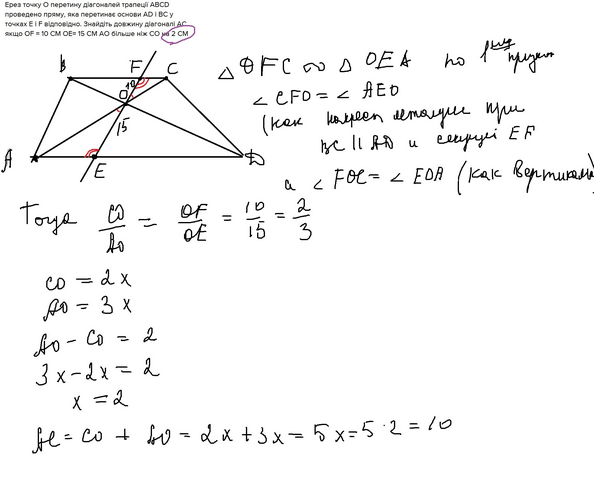 Ерез точку О перетину діагоналей трапеції ABCD
проведено пряму, яка перетинає основи AD і BC у
точках E і F відповідно. Знайдіть довжину діагоналі AC,
якщо OF = 10 СМ OE= 15 СМ АО більше ніж СО на 2 СМ
B F C
10
O
15
A E D
△ OFC ∾ △ OEA по 1
∠ CFO = ∠ AEO
(как при
BC || AD и секущей EF
а ∠ FOC = ∠ EOA (как вертикальн)
Тогда CO/AO = OF/OE = 10/15 = 2/3
CO = 2x
AO = 3x
AO - CO = 2
3x - 2x = 2
x = 2
AC = CO + AO = 2x + 3x = 5x = 5 · 2 = 10